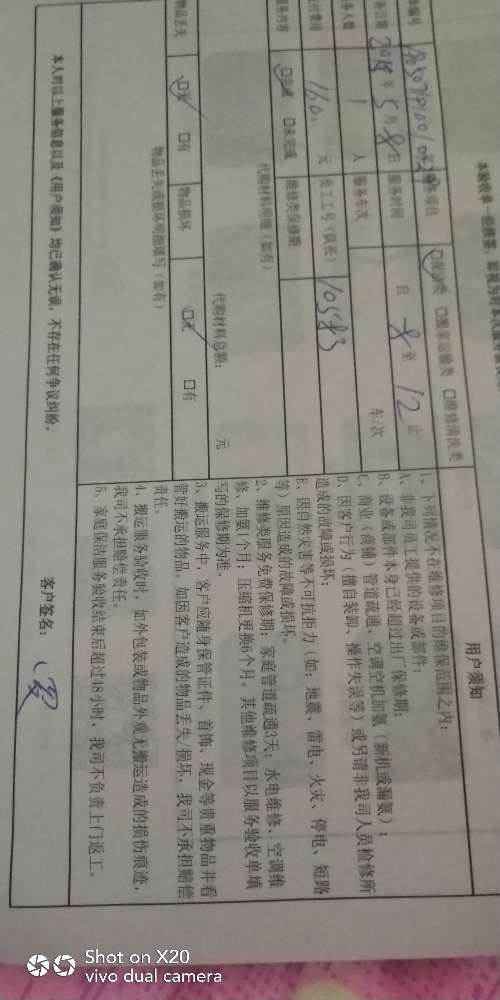 本验收单一经核签，即视为对本人
单编号
务日期 2018年5月8日 服务时间 自 8 至 12 止
务人数 1 人 服务车次 车/次
支付费用 160 元 员工工号（队长） 10583
服务内容 ☑完成 □未完成 维修类保修期
代购材料明细（如有）
代购材料总额： 元
物品丢失 ☑无 □有 物品损坏 ☑无 □有
物品丢失或损坏明细填写（如有）
服务项目 ☑保洁类 □搬家运输类 □维修清洗类
用户须知
1、下列情况不在维修项目的维保范围之内：
A、非我司员工提供的设备或部件；
B、设备或部件本身已经超过出厂保修期；
C、商业（商铺）管道疏通、空调空机加氨（新机或漏氨）；
D、因客户行为（擅自装卸、操作失误等）或另请非我司人员检修所
造成的故障或损坏；
E、因自然灾害等不可抗拒力（如：地震、雷电、火灾、停电、短路
等）原因造成的故障或损坏。
2、维修类服务免费保修期：家庭管道疏通3天；水电维修、空调维
修、加氨1个月；压缩机更换6个月。其他维修项目以服务验收单填
写的保修期为准。
3、搬运服务中，客户应随身保管证件、首饰、现金等贵重物品并看
管好搬运的物品。如因客户造成的物品丢失/损坏，我司不承担赔偿
责任。
4、搬运服务验收时，如外包装或物品外观无搬运造成的损伤痕迹，
我司不承担赔偿责任。
5、家庭保洁服务验收结束后超过48小时，我司不负责上门返工。
本人对以上服务信息以及《用户须知》均已确认无误，不存在任何争议纠纷。
客户签名：
Shot on X20
vivo dual camera